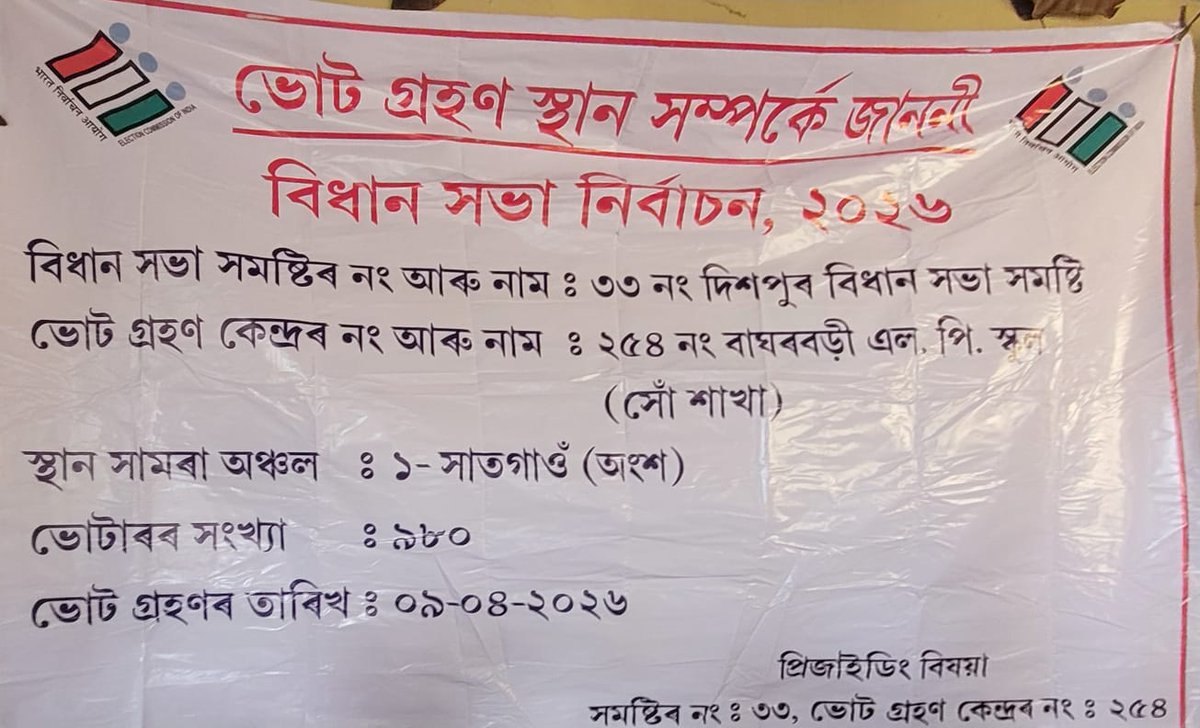 ভোট গ্ৰহণ স্থান সম্পৰ্কে জাননী
বিধান সভা নিৰ্বাচন, ২০২৬
বিধান সভা সমষ্টিৰ নং আৰু নাম : ৩৩ নং দিশপুৰ বিধান সভা সমষ্টি
ভোট গ্ৰহণ কেন্দ্ৰৰ নং আৰু নাম : ২৫৪ নং বাঘৰবৰী এল. পি. স্কুল
(সোঁ শাখা)
স্থান সামৰা অঞ্চল : ১- সাতগাওঁ (অংশ)
ভোটাৰৰ সংখ্যা : ৯৮০
ভোট গ্ৰহণৰ তাৰিখ : ০৯-০৪-২০২৬
প্ৰিজাইডিং বিষয়া
সমষ্টিৰ নং : ৩৩, ভোট গ্ৰহণ কেন্দ্ৰৰ নং : ২৫৪
भारत निर्वाचन आयोग
ELECTION COMMISSION OF INDIA